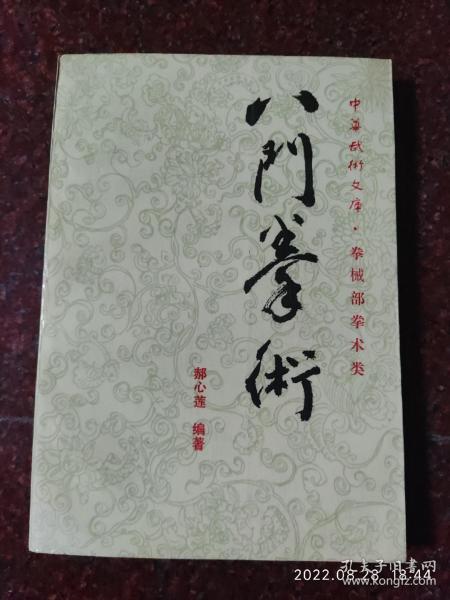 中华武術文库·拳械部拳术类
八門拳術
郝心莲 编著
2022.08.28 18:44
孔夫子旧书网
www.kongfz.com